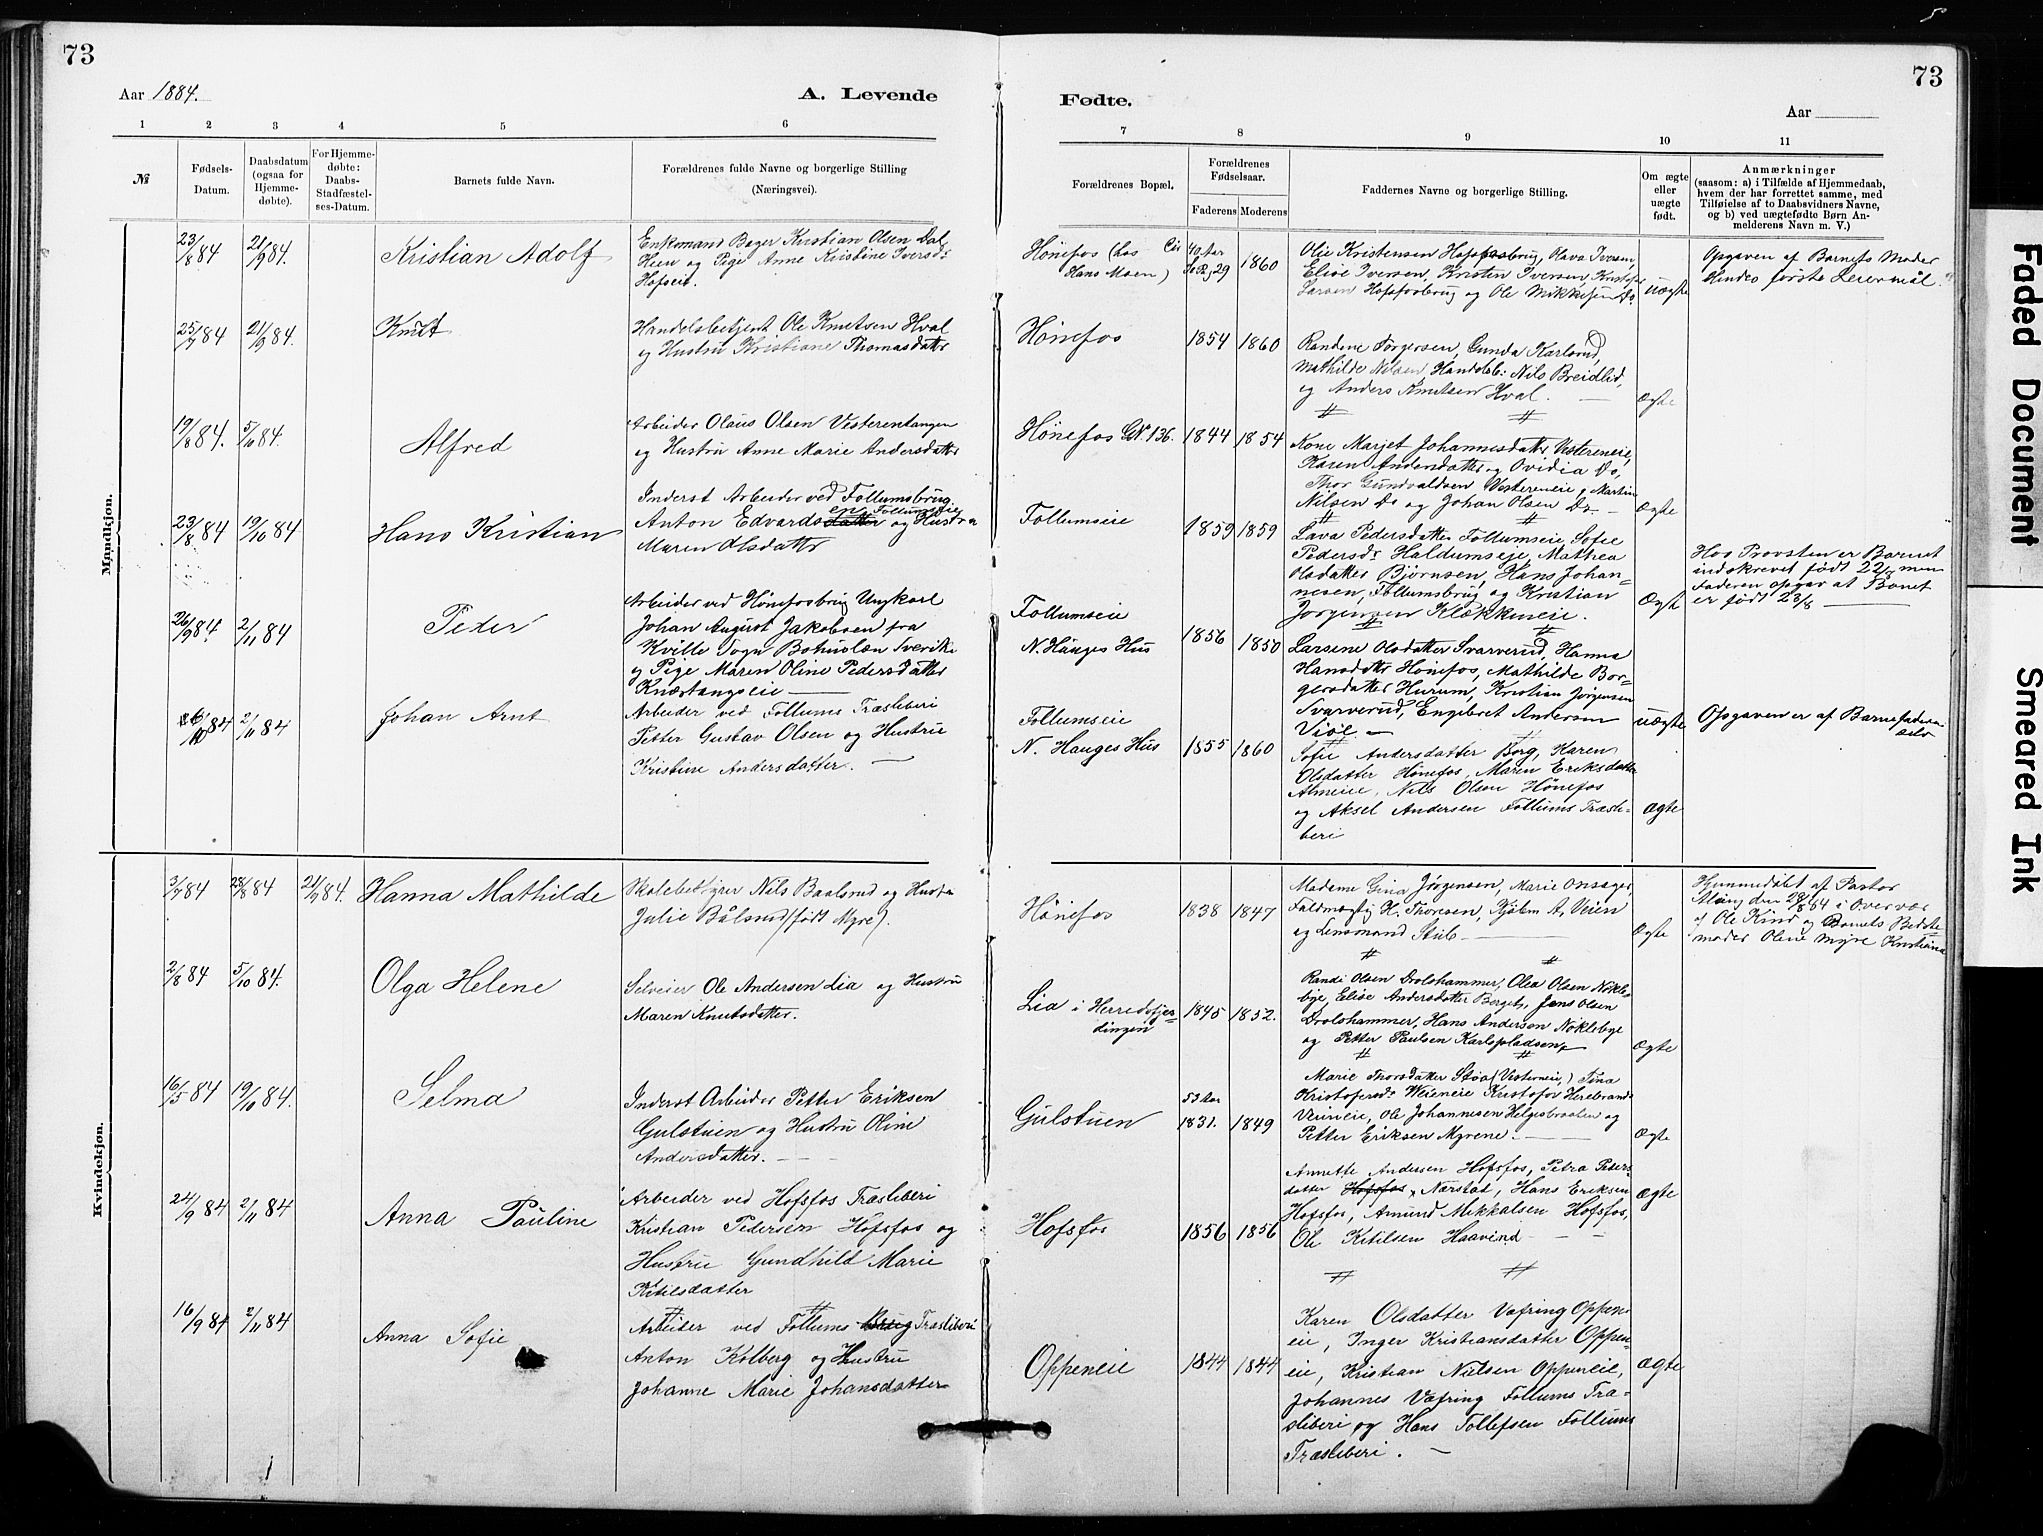 5
73
73
Aar 1884.
A. Levende
Fødte.
Aar
1 2 3 4 5 6
7 8 9 10 11
№
Fødsels-
Datum.
Daabsdatum
(ogsaa for
Hjemme-
døbte).
For Hjemme-
døbte:
Daabs-
Stadfæstel-
ses-Datum.
Barnets fulde Navn.
Forældrenes fulde Navne og borgerlige Stilling
(Næringsvei).
Forældrenes Bopæl.
Forældrenes
Fødselsaar.
Faderens Moderens
Faddernes Navne og borgerlige Stilling.
Om ægte
eller
uægte
født.
Anmærkninger
(saasom: a) i Tilfælde af Hjemmedaab,
hvem der har forrettet samme, med
Tilføielse af to Daabsvidners Navne,
og b) ved uægtefødte Børn An-
melderens Navn m. V.)
Mandkjøn.
23/8 84 21/9 84. Kristian Adolf
Enkemand Bager Kristian Olsen Dal
Hien og Pige Anne Kristine Iversd:
Hofseie.
Hønefos (hos
Hans Moen)
40 Aar
29 1860
Olie Kristensen Hofsfosbrug, Olava Iversen,
Elise Iversen, Kristen Iversen, Kristofer
Larsen Hofsfosbrug og Ole Mikkelsen Do
uægte
Opgaven af Barnets Moder
Hendes første Leiermål.
25/7 84 21/9 84. Knut
Handelsbetjent Ole Knutsen Hval
og Hustru Kristiane Thomasdatter
Hønefos
1854 1860
Randine Torgersen, Gunda Karlsrud,
Mathilde Nilsen, Handelsb: Nils Breidlid,
og Anders Knutsen Hval.
Ægte
19/8 84. 5/10 84. Alfred
Arbeider Olaus Olsen Vesterentangen
og Hustru Anne Marie Andersdatter
Hønefos GN. 136.
1844 1854
Kone Marjet Johannesdatter Vestereneie,
Karen Andersdatter og Ovidia Do,
Thor Gundvaldsen Vestereneie, Martin
Nilsen Do og Johan Olsen Do.
Ægte
23/8 84 19/10 84 Hans Kristian
Inderst Arbeider ved Follumsbrug
en Follumseie
Anton Edvardsdatter og Hustru
Maren Olsdatter
Follumseie
1859 1859
Lava Pedersdatter Follumseie, Sofie
Pedersd: Haldumseie, Mathea
Olsdatter Bjørnsen, Hans Johan-
nesen, Follumsbrug og Kristian
Jørgensen Klækkeneie.
Ægte
Hos Provsten er Barnet
indskrevet født 22/7 men
Faderen opgør at Barnet
er født 23/8
26/9 84. 2/11 84 Peder
Arbeider ved Hønefosbrug Ungkarl
Johan August Jakobsen fra
Kville Sogn Bohuslæn Sverike
og Pige Maren Oline Pedersdatter
Knæstangseie
Follumseie
N. Hauges Hus
1856 1850
Larsene Olsdatter Svarverud, Hanna
Hansdatter Hønefos, Mathilde Bor-
gersdatter Hurum, Kristian Jørgensen
Svarverud, Engebret Andersen
Viøl
uægte
Opgaven er af Barnefaderen
selv
26/10 84 2/11 84 Johan Arnt
Arbeider ved Follums Træsliberi
Petter Gustav Olsen og Hustrue
Kristine Andersdatter.
Follumseie
N. Hauges Hus
1855 1860
Sofie Andersdatter Borg, Karen
Olsdatter Hønefos, Maren Eriksdatter
Almeie, Nils Olsen Hønefos
og Aksel Andersen Follums Træsli-
beri
Ægte
Kvindekjøn.
3/7 84 28/8 84 21/9 84. Hanna Mathilde
Skolebestyrer Nils Baalsrud og Hustru
Julie Bålsrud (født Myre).
Hønefos
1838 1847
Madame Gina Jørgensen, Marie Onsager
Fuldmægtig H. Thoresen, Kjøbm A. Veien
og Lensmand Stub
Ægte
Hjemmedøbt af Pastor
28/8 84 i Overvær
af Ole Kind og Barnets Bedste-
moder Olene Myre Kristiania
2/8 84 5/10 84. Olga Helene
Selveier Ole Andersen Lia og Hustru
Maren Knutsdatter.
Lia i Herredsfjer-
dingen
1845 1852.
Randi Olsen Drolshammer, Olea Olsen Nøkle-
bye, Elise Andersdatter Berget, Jens Olsen
Drolshammer, Hans Andersen Nøklebye
og Petter Paulsen Karlspladsen
Ægte
16/5 84 19/10 84. Selma
Inderst Arbeider Petter Eriksen
Gulstuen og Hustru Oline
Andersdatter.
Gulstuen
53 Aar
1831. 1849
Marie Thorsdatter Støa (Vesterneie,) Tina
Kristofersd: Weieneie Kristofer Herebrands
Veieneie, Ole Johannesen Helgesbraaten og
Petter Eriksen Myrene.
Ægte
24/9 84 2/11 84 Anna Pauline
Arbeider ved Hofsfos Træsliberi
Kristian Pedersen Hofsfos og
Hustru Gundhild Marie
Ketilsdatter
Hofsfos
1856 1856
Annette Andersen Hofsfos, Petra Peders-
datter Hofsfos, Nærstad, Hans Eriksen
Hofsfos, Amund Mikkalsen Hofsfos,
Ole Ketilsen Haavind
Ægte
16/9 84 2/11 84 Anna Sofie
Arbeider ved Follums Brug Træsliberi
Anton Kolberg og Hustru
Johanne Marie Johansdatter
Oppeneie
1844 1844
Karen Olsdatter Væfring Oppen-
eie, Inger Kristiansdatter Oppen-
eie, Kristian Nielsen Oppeneie,
Johannes Væfring Follums Træ-
sliberi og Hans Tollefsen Follums
Træsliberi.
Ægte
Faded Document
Smeared Ink